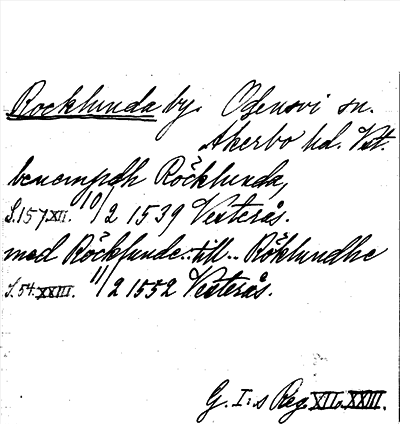 Rocklunda by. Odensvi sn.
Åkerbo hd. Vstt.
benempdh Röcklunda,
S.157.XII. 10/2 1539 Vesterås.
med Röcklunde..till.. Röklundhe
S.54.XXIII. 11/2 1552 Vesterås.
G. I:s Reg. XII o. XXIII.